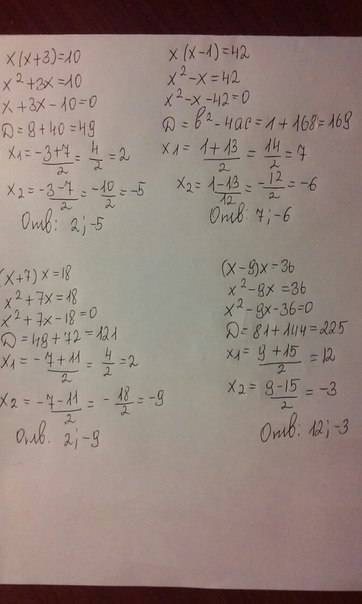 x(x+3)=10
x²+3x=10
x+3x-10=0
D=9+40=49
x1=(-3+7)/2=4/2=2
x2=(-3-7)/2=-10/2=-5
Отв: 2;-5
x(x-1)=42
x²-x=42
x²-x-42=0
D=b²-4ac=1+168=169
x1=(1+13)/2=14/2=7
x2=(1-13)/12=-12/2=-6
Отв: 7;-6
(x+7)x=18
x²+7x=18
x²+7x-18=0
D=49+72=121
x1=(-7+11)/2=4/2=2
x2=(-7-11)/2=-18/2=-9
Отв: 2;-9
(x-9)x=36
x²-9x=36
x²-9x-36=0
D=81+144=225
x1=(9+15)/2=12
x2=(9-15)/2=-3
Отв: 12;-3